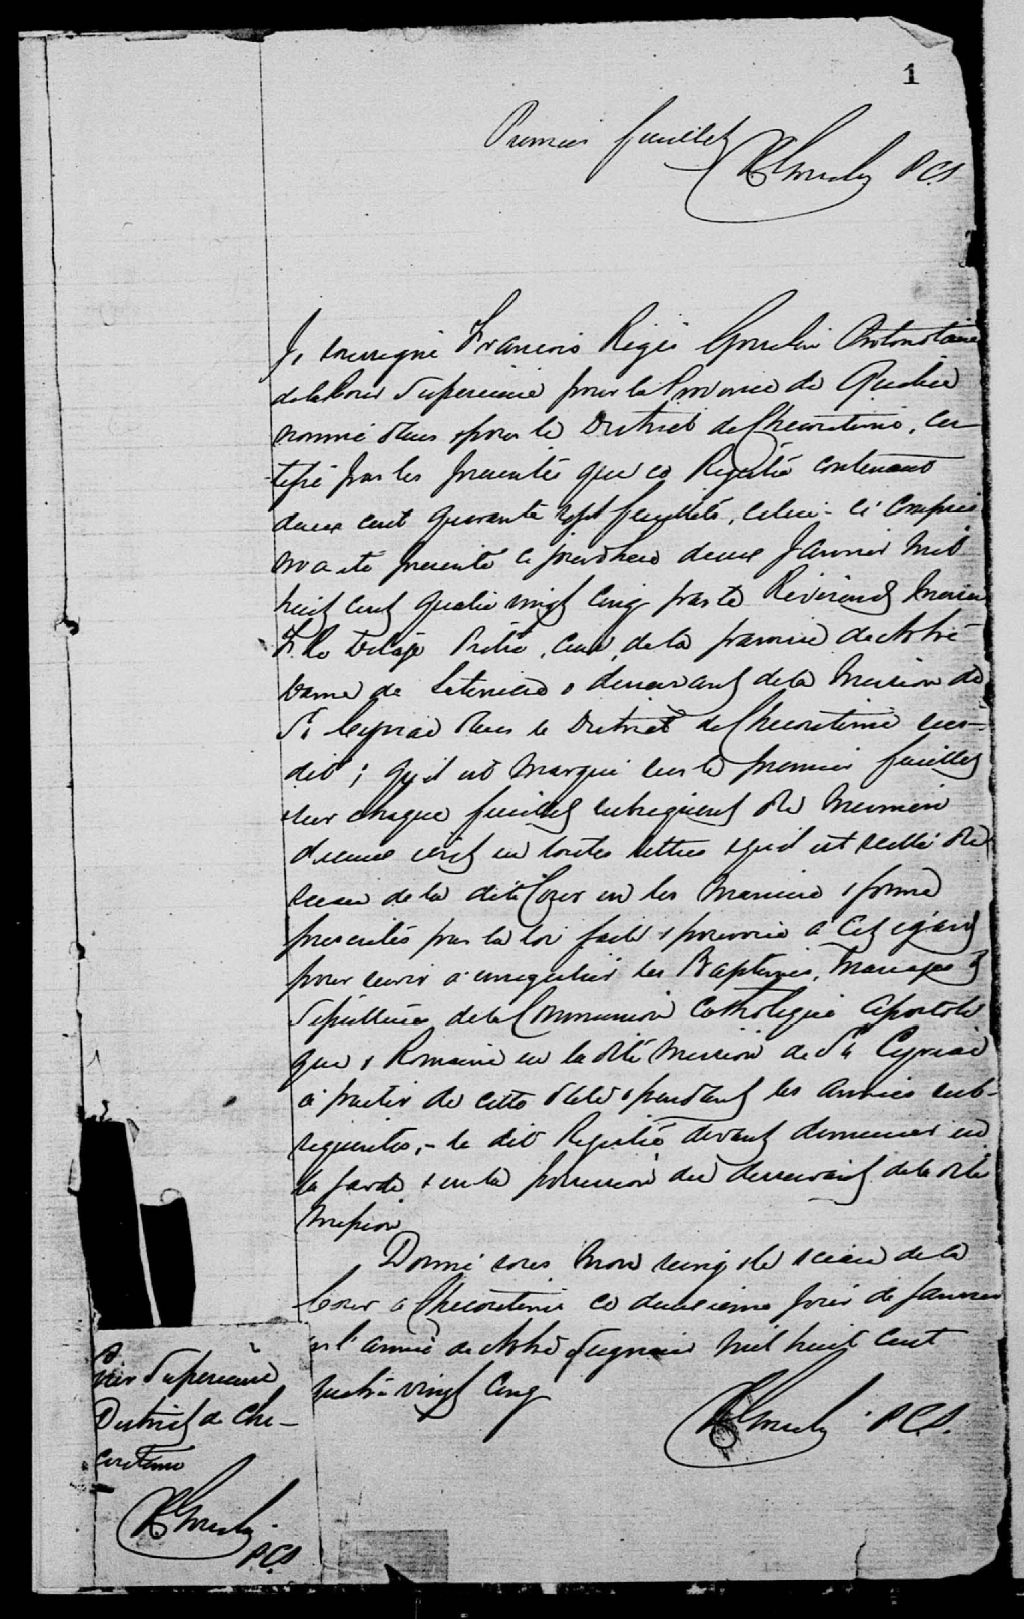 1
Premier feuillet
FGosselin P.C.S.
Je soussigné François Régis Gosselin Protonotaire
de la Cour Supérieure pour la Province de Québec
nommé dans & pour le District de Chicoutimi, cer-
tifie par les présentes que ce Registre contenant
deux cent quarante sept feuillets, celui-ci compris
m'a été présenté ce jourd'hui deux Janvier mil
huit cent quatre vingt cinq par le Révérend Messire
Delâge Prêtre, Curé, de la paroisse de Notre
Dame de & desservant de la Mission de
St Cyriac dans le District de Chicoutimi sus-
dit; qu'il est marqué sur le premier feuillet
& sur chaque feuillet subséquent du numéro
d'icelui écrit en toutes lettres & qu'il est scellé du
sceau de la dite Cour en la manière & forme
prescrites par la loi faite & pourvue à cet égard
pour servir à enregistrer les Baptêmes, Mariages &
Sépultures de la Communion Catholique Apostoli
que & Romaine en la dite Mission de St Cyriac
à partir de cette date & pendant les années sub-
séquentes, - le dit Registre devant demeurer en
la garde & en la possession du desservant de la dite
Mission
Donné sous mon seing & le sceau de la
Cour à Chicoutimi ce deuxième jour de Janvier
en l'année de Notre Seigneur mil huit cent
quatre vingt cinq
FGosselin P.C.S.
Cour Supérieure
District de Chi-
coutimi
FGosselin
P.C.S.